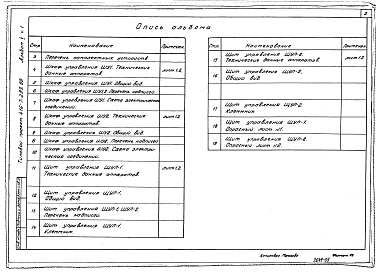 2
Опись альбома
Стр. Наименование Примечан.
3 Перечень комплектных устройств
4 Шкаф управления ШУ1. Технические данные аппаратов. лист 1.2
5 Шкаф управления ШУ1. Общий вид.
6 Шкаф управления ШУ1. Перечень надписей
7 Шкаф управления ШУ1. Схема электрических соединений.
8 Шкаф управления ШУ2. Технические данные аппаратов. лист 1.2
9 Шкаф управления ШУ2. Общий вид.
9 Шкаф управления ШУ2. Перечень надписей
10 Шкаф управления ШУ2. Схема электрических соединений.
11 Щит управления ЩУП-1. Технические данные аппаратов. лист 1.2
12 Щит управления ЩУП-1. Общий вид.
13 Щит управления ЩУП-1, ЩУП-2. Перечень надписей.
14 Щит управления ЩУП-1. Клеммник.
Стр. Наименование Примечан.
15 Щит управления ЩУП-2. Технические данные аппаратов. лист 1.2
16 Щит управления ЩУП-2. Общий вид.
17 Щит управления ЩУП-2 Клеммник
18 Щит управления ЩУП-1. Опросный лист №1.
19 Щит управления ЩУП-2. Опросный лист №2.
Типовой проект
Альбом
Копировал
Формат